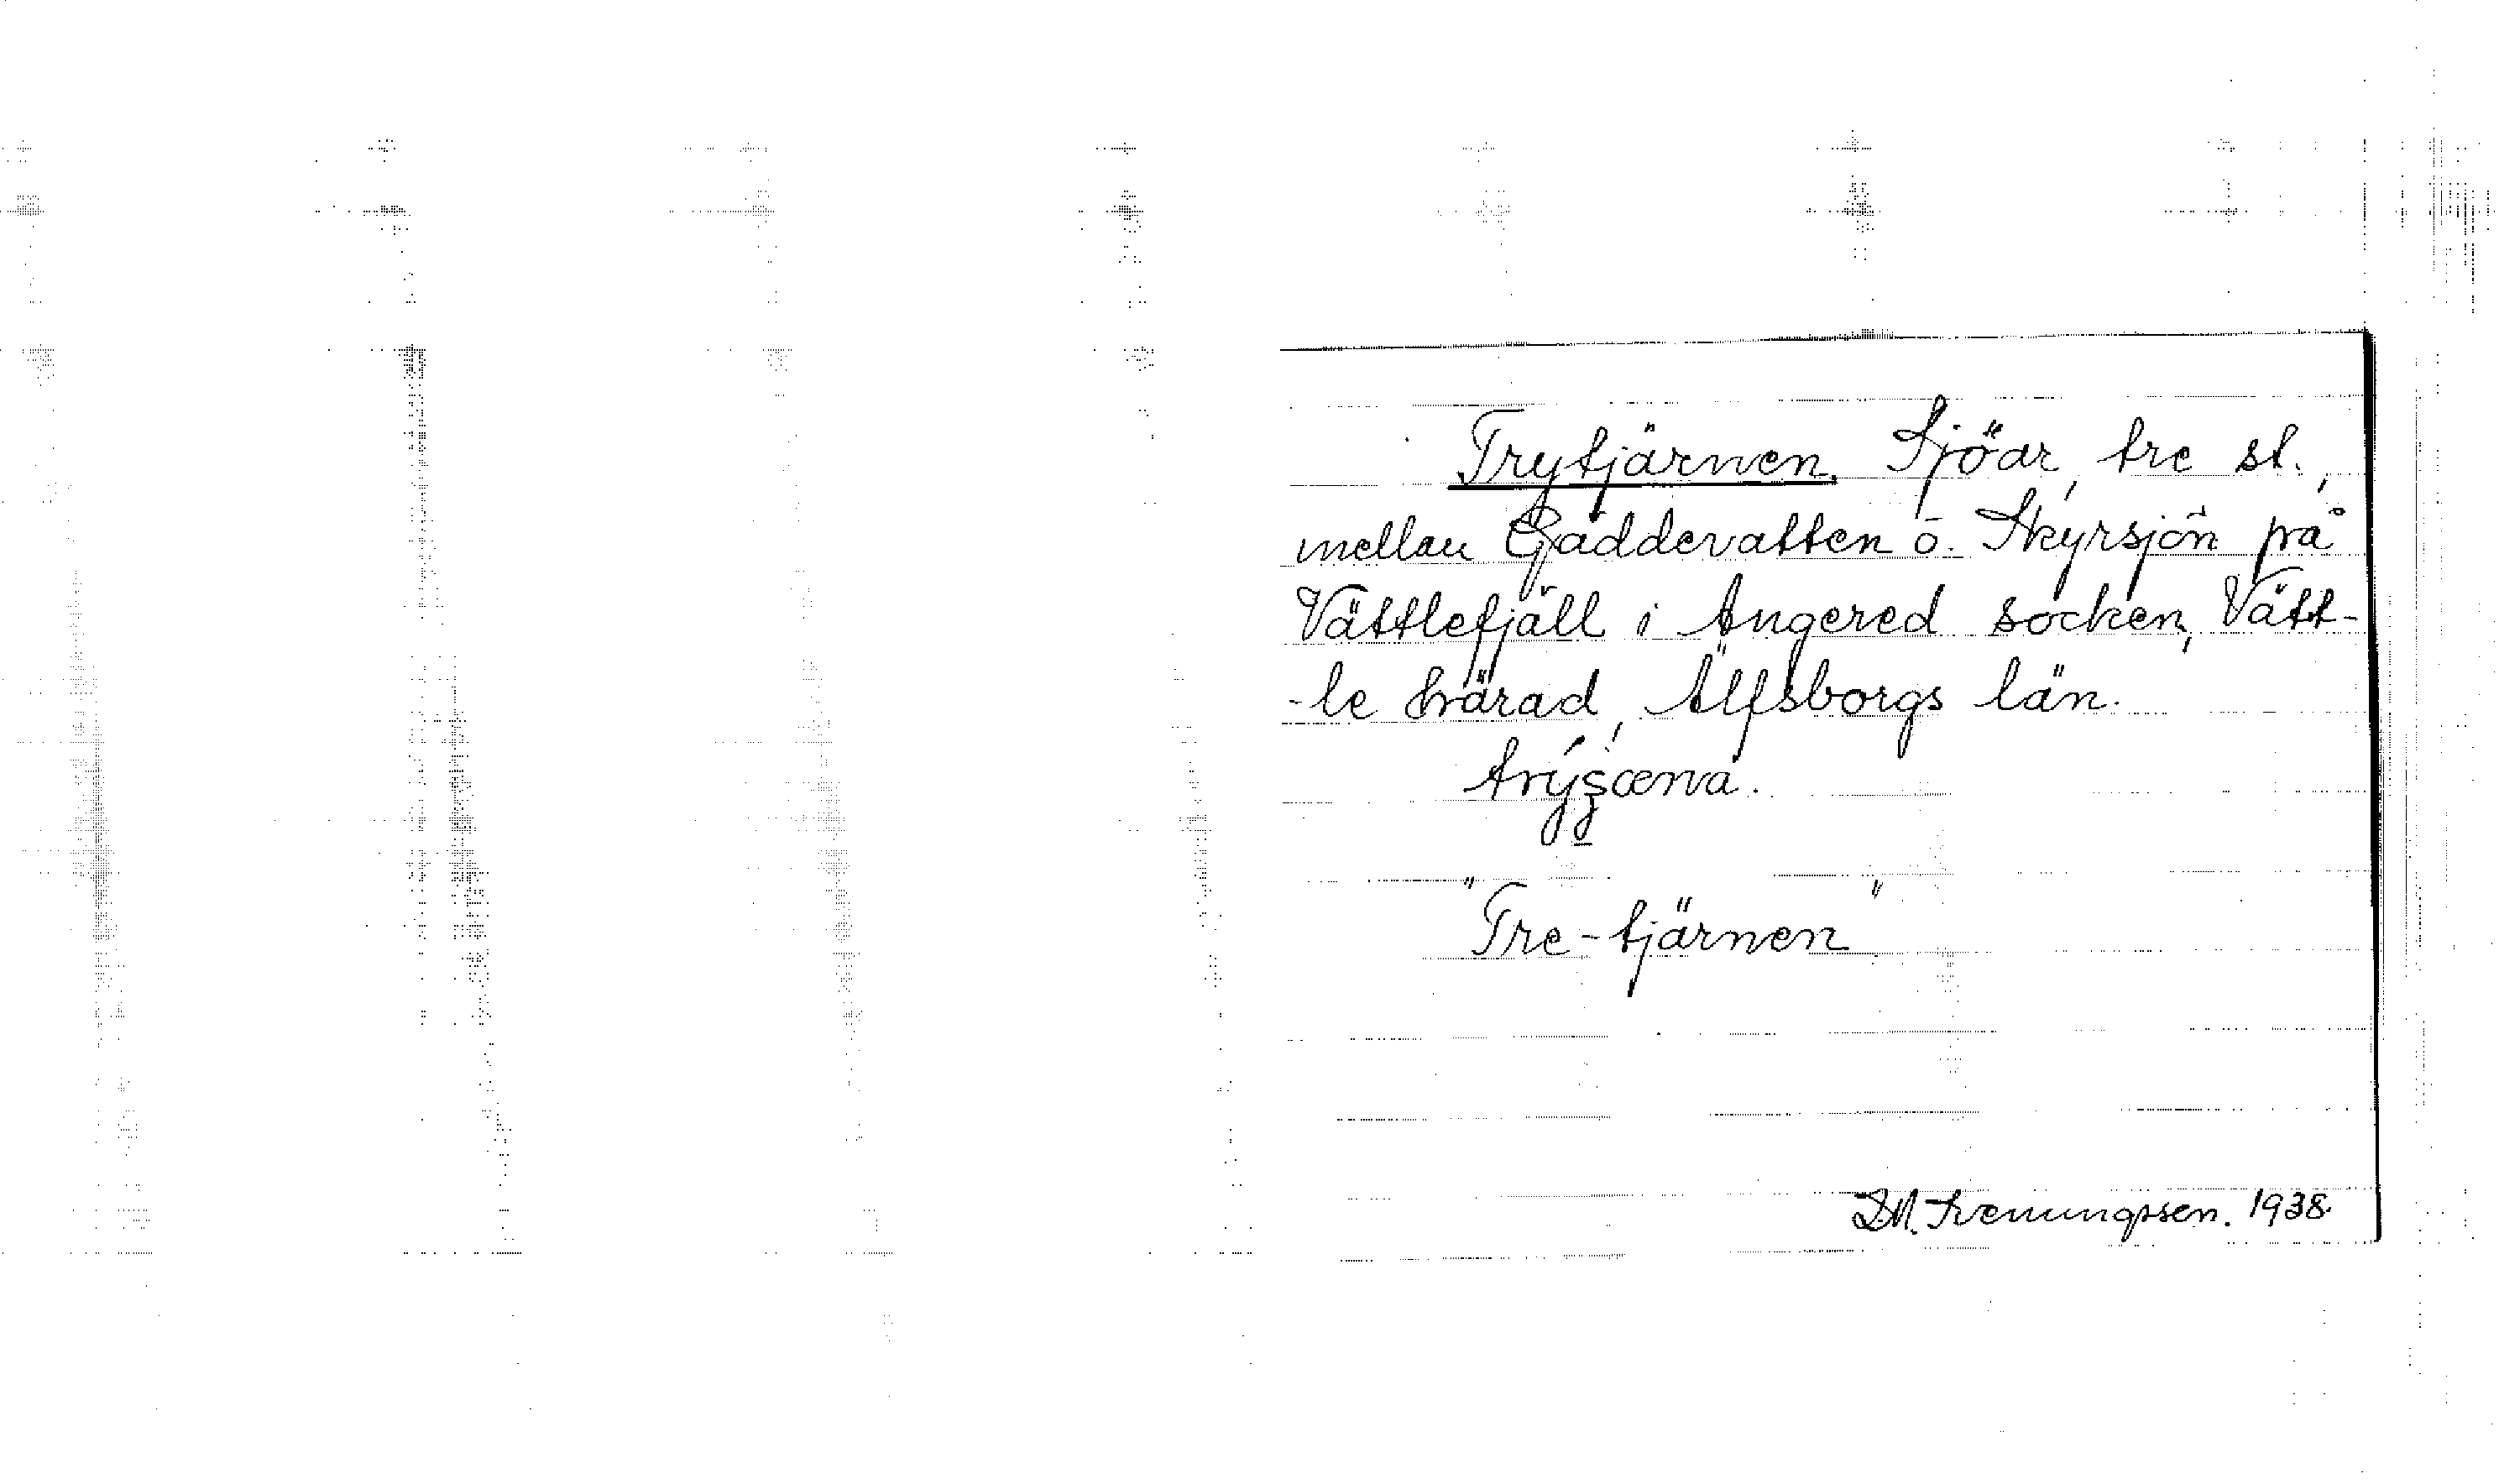 Trytjärnen. Sjöar, tre st.,
mellan Gäddevatten o. Skyrsjön på
Vättlefjäll i Angered socken, Vätt-
-le härad, Älfsborgs län.
"Tre-tjärnen"
1938